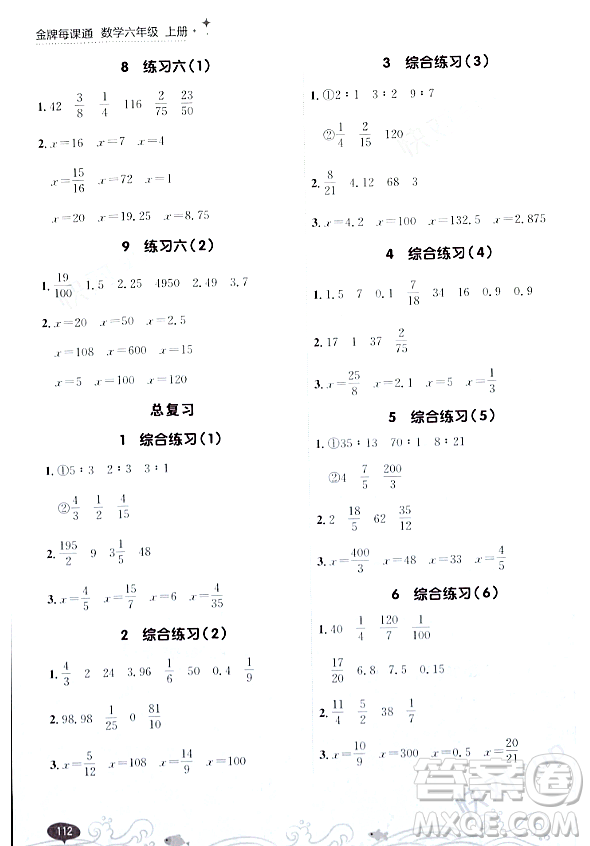 金牌每课通 数学六年级 上册
8 练习六(1)
1. 42 3/8 1/4 116 2/75 23/50
2. x=16 x=7 x=4
x=15/16 x=72 x=1
x=20 x=19.25 x=8.75
9 练习六(2)
1. 19/100 1.5 2.25 4950 2.7 3.7
2. x=20 x=50 x=2.5
x=108 x=600 x=15
x=5 x=100 x=120
总复习
1 综合练习(1)
1. ①5∶3 2∶1 3∶2
②4/3 1/2 4/15
2. 195/2 9 3 1/5 48
3. x=4/5 x=15/7 x=6 x=4/35
2 综合练习(2)
1. 4/3 2 24 3.96 1/6 50 0.4 1/9
2. 98.98 1/25 0 81/10
3. x=5/12 x=108 x=14/9 x=100
3 综合练习(3)
1. ①2∶1 3∶2 9∶7
②1/4 2/15 120
2. 8/21 4.12 68 3
3. x=4.2 x=100 x=132.5 x=2.875
4 综合练习(4)
1. 1.5 7 0.1 7/18 34 16 0.9 0.9
2. 17 1 37 2/75
3. x=25/8 x=2.1 x=9 x=3
5 综合练习(5)
1. ①35∶13 70∶1 8∶21
②4 7/5 200/3
2. 2 18/5 62 35/12
3. x=400/3 x=48 x=33 x=4/5
6 综合练习(6)
1. 40 1/4 120/7 1/100
17/20 6.8 7.5 0.15
2. 11/4 5/2 38 1/7
3. x=10/9 x=300 x=0.5 x=20/21
112
答案圈